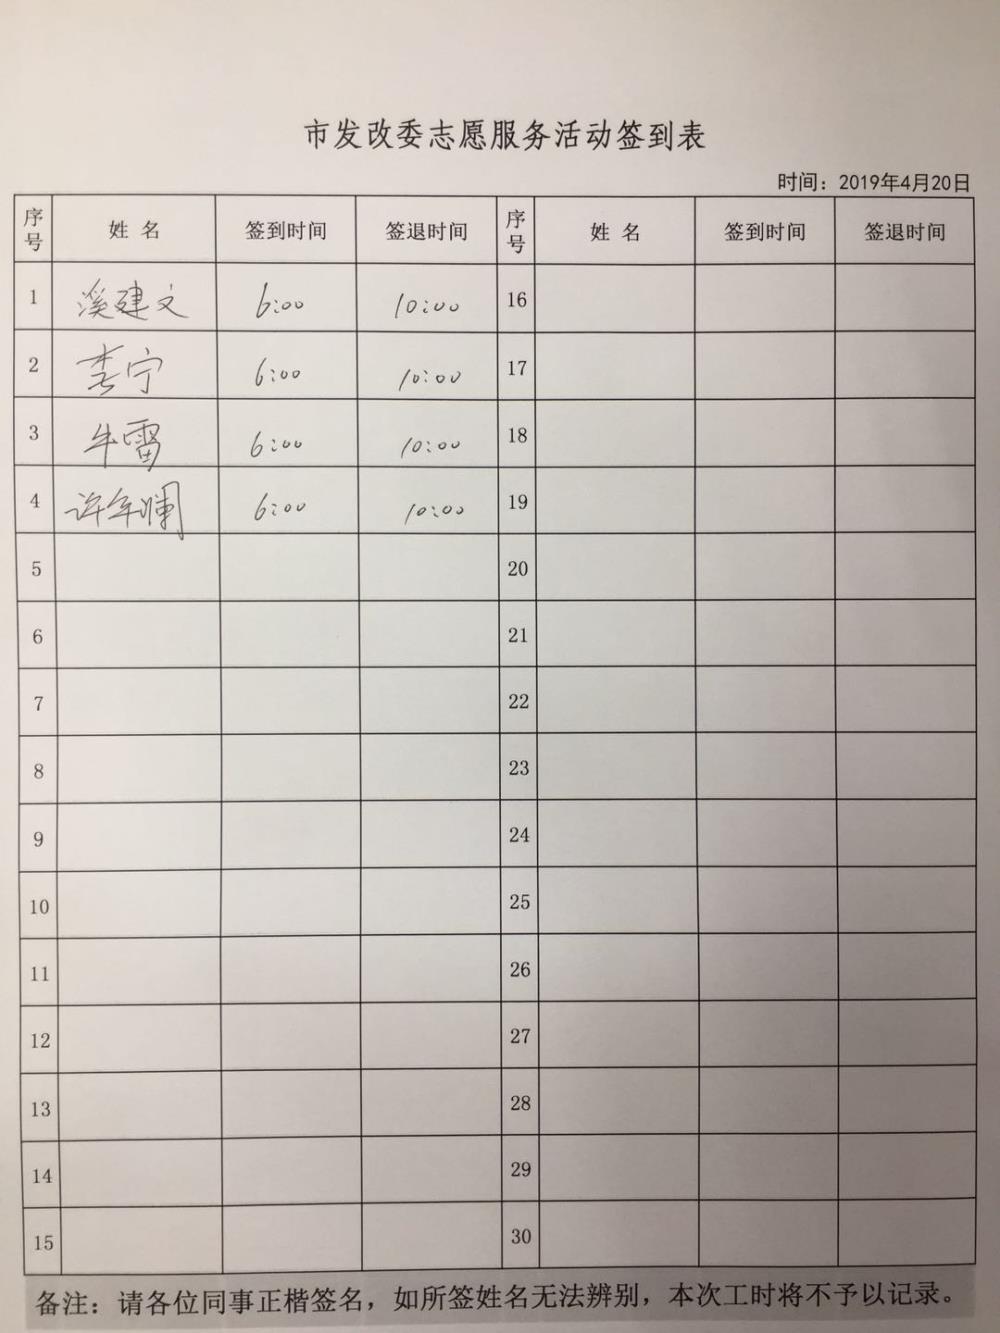 市发改委志愿服务活动签到表
时间：2019年4月20日
序号 姓 名 签到时间 签退时间 序号 姓 名 签到时间 签退时间
1 溪建文 6:00 10:00 16
2 李宁 6:00 10:00 17
3 牛雷 6:00 10:00 18
4 许年斓 6:00 10:00 19
5 20
6 21
7 22
8 23
9 24
10 25
11 26
12 27
13 28
14 29
15 30
备注：请各位同事正楷签名，如所签姓名无法辨别，本次工时将不予以记录。